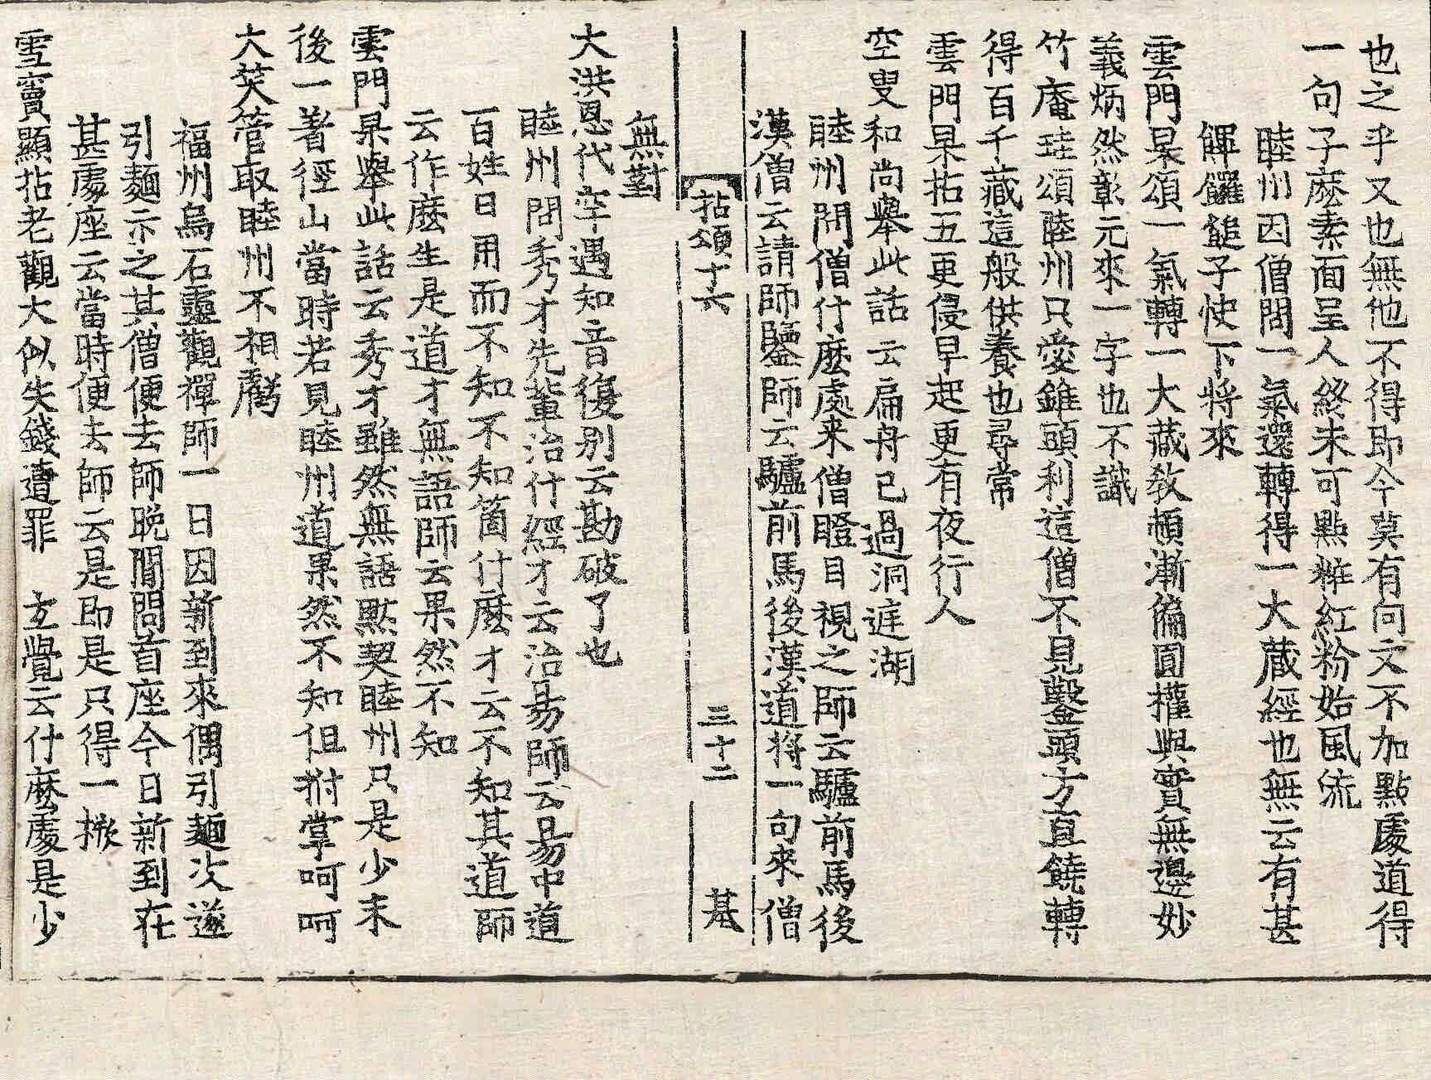 也之乎又也無他不得即今莫有向文不加點處道得
一句子麽素面呈人終未可點粧紅粉始風流
睦州因僧問一氣還轉得一大藏經也無云有甚
饆饠鎚子快下將來
雲門杲頌一氣轉一大藏教頓漸徧圓權與實無邊妙
義炳然彰元來一字也不識
竹庵珪頌睦州只愛錐頭利這僧不見鑿頭方直饒轉
得百千藏這般供養也尋常
雲門杲拈五更侵早起更有夜行人
空叟和尚舉此話云扁舟已過洞庭湖
睦州問僧什麽處来僧瞪目視之師云驢前馬後
漢僧云請師鑒師云驢前馬後漢道將一句來僧
拈頌十六 三十二 基
無對
大洪恩代云遇知音復別云勘破了也
睦州問秀才先輩治什經才云治昜師云昜中道
百姓日用而不知不知箇什麽才云不知其道師
云作麽生是道才無語師云果然不知
雲門杲舉此話云秀才雖然無語點契睦州只是少末
後一著徑山當時若見睦州道果然不知但拊掌呵呵
大笑管取睦州不相
福州烏石靈觀禪師一日因新到來偶引麵次遂
引麵示之其僧便去師晚閒問首座今日新到在
甚處座云當時便去師云是即是只得一橛
雪竇顯拈老觀大似失錢遭罪 玄覺云什麽處是少